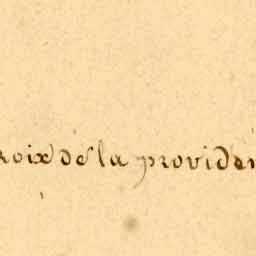 roix de la providen